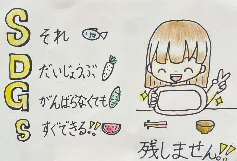 S それ
D だいじょうぶ
G がんばらなくても
s すぐできる!!
残しません。!!